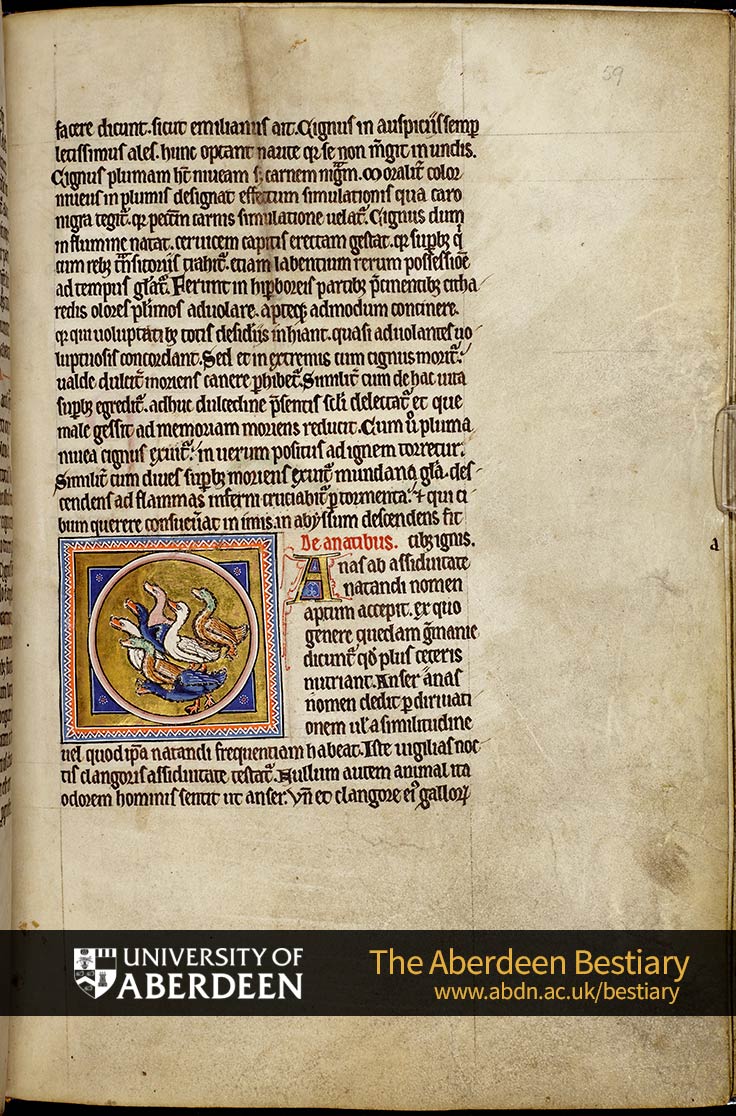 59
facere dicunt. sicut emilianus ait. Cignus in auspiciis semp
letissimus ales. hunc optant naute qr se non mgit in undis.
Cignus plumam ht niueam s; carnem nigm. Moralit color
niueus in plumis designat effectum simulationis qua caro
nigra tegit. qr peccm carnis simulatione uelat. Cignus dum
in flumine natat. ceruicem capitis erectam gestat. qr supbus q
cum reb; tnsitoriis trahit. etiam labentium rerum possessione
ad tempus glat. Ferunt in hipboreis partib; pcinentib; citha
redis olores plimos aduolare. apteq; admodum concinere.
qr qui uoluptatib; totis desidiis inhiant. quasi aduolantes uo
luptuosis concordant. Sed et in extremis cum cignus morit.
ualde dulcit moriens canere phibet. Similit cum de hac uita
supb; egredit. adhuc dulcedine psentis scli delectat et que
male gessit ad memoriam moriens reducit. Cum u pluma
niuea cignus exuit. in uerum positus ad ignem torretur.
Similit cum diues supb; moriens exuit mundana gla. des
cendens ad flammas inferni cruciabit p tormenta. & qui ci
bum querere consueuat in imis. in abyssum descendens fit
De anatibus. cib; ignis.
Anas ab assiduitate
natandi nomen
aptum accepit. ex quo
genere quedam gmanie
dicunt qd plus ceteris
nutriant. Anser anas
nomen dedit p diriuati
onem ul a similitudine
uel quod ipa natandi frequentiam habeat. Iste uigilias noc
tis clangoris assiduitate testat. Nullum autem animal ita
odorem hominis sentit ut anser. Vn et clangore ei gallorꝝ
a
UNIVERSITY OF
ABERDEEN
The Aberdeen Bestiary
www.abdn.ac.uk/bestiary